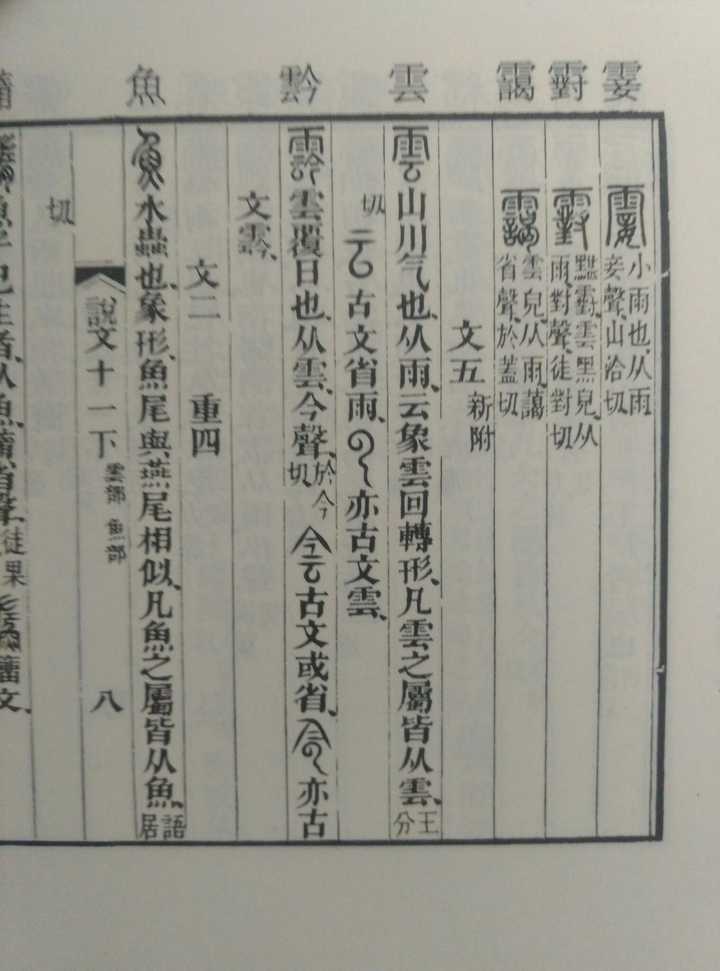 霎 䨴 靄 雲 霒 魚
霎 小雨也、从雨
妾聲、山洽切
䨴 黮䨴、雲黑皃、从
雨、對聲、徒對切
靄 雲皃、从雨、藹
省聲、於蓋切
文五 新附
雲 山川气也、从雨、云象雲回轉形、凡雲之屬皆从雲、王分
切 云 古文省雨、亦古文雲、
霒 雲覆日也、从雲、今聲、於今切 侌 古文或省、亦古
文霒、
文二 重四
魚 水蟲也、象形、魚尾與燕尾相似、凡魚之屬皆从魚、語居
說文十一下 雲部 魚部 八
切
魚子已生者、从魚、省聲、徒果 籒文、